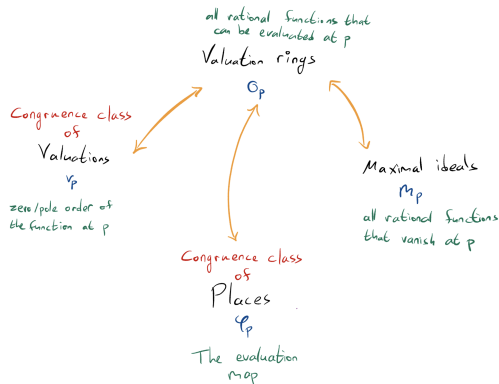 all rational functions that
can be evaluated at p
Valuation rings
O_p
Congruence class
of
Valuations
v_p
zero/pole order of
the function at p
Maximal ideals
m_p
all rational functions
that vanish at p
Congruence class
of
Places
φ_p
The evaluation
map